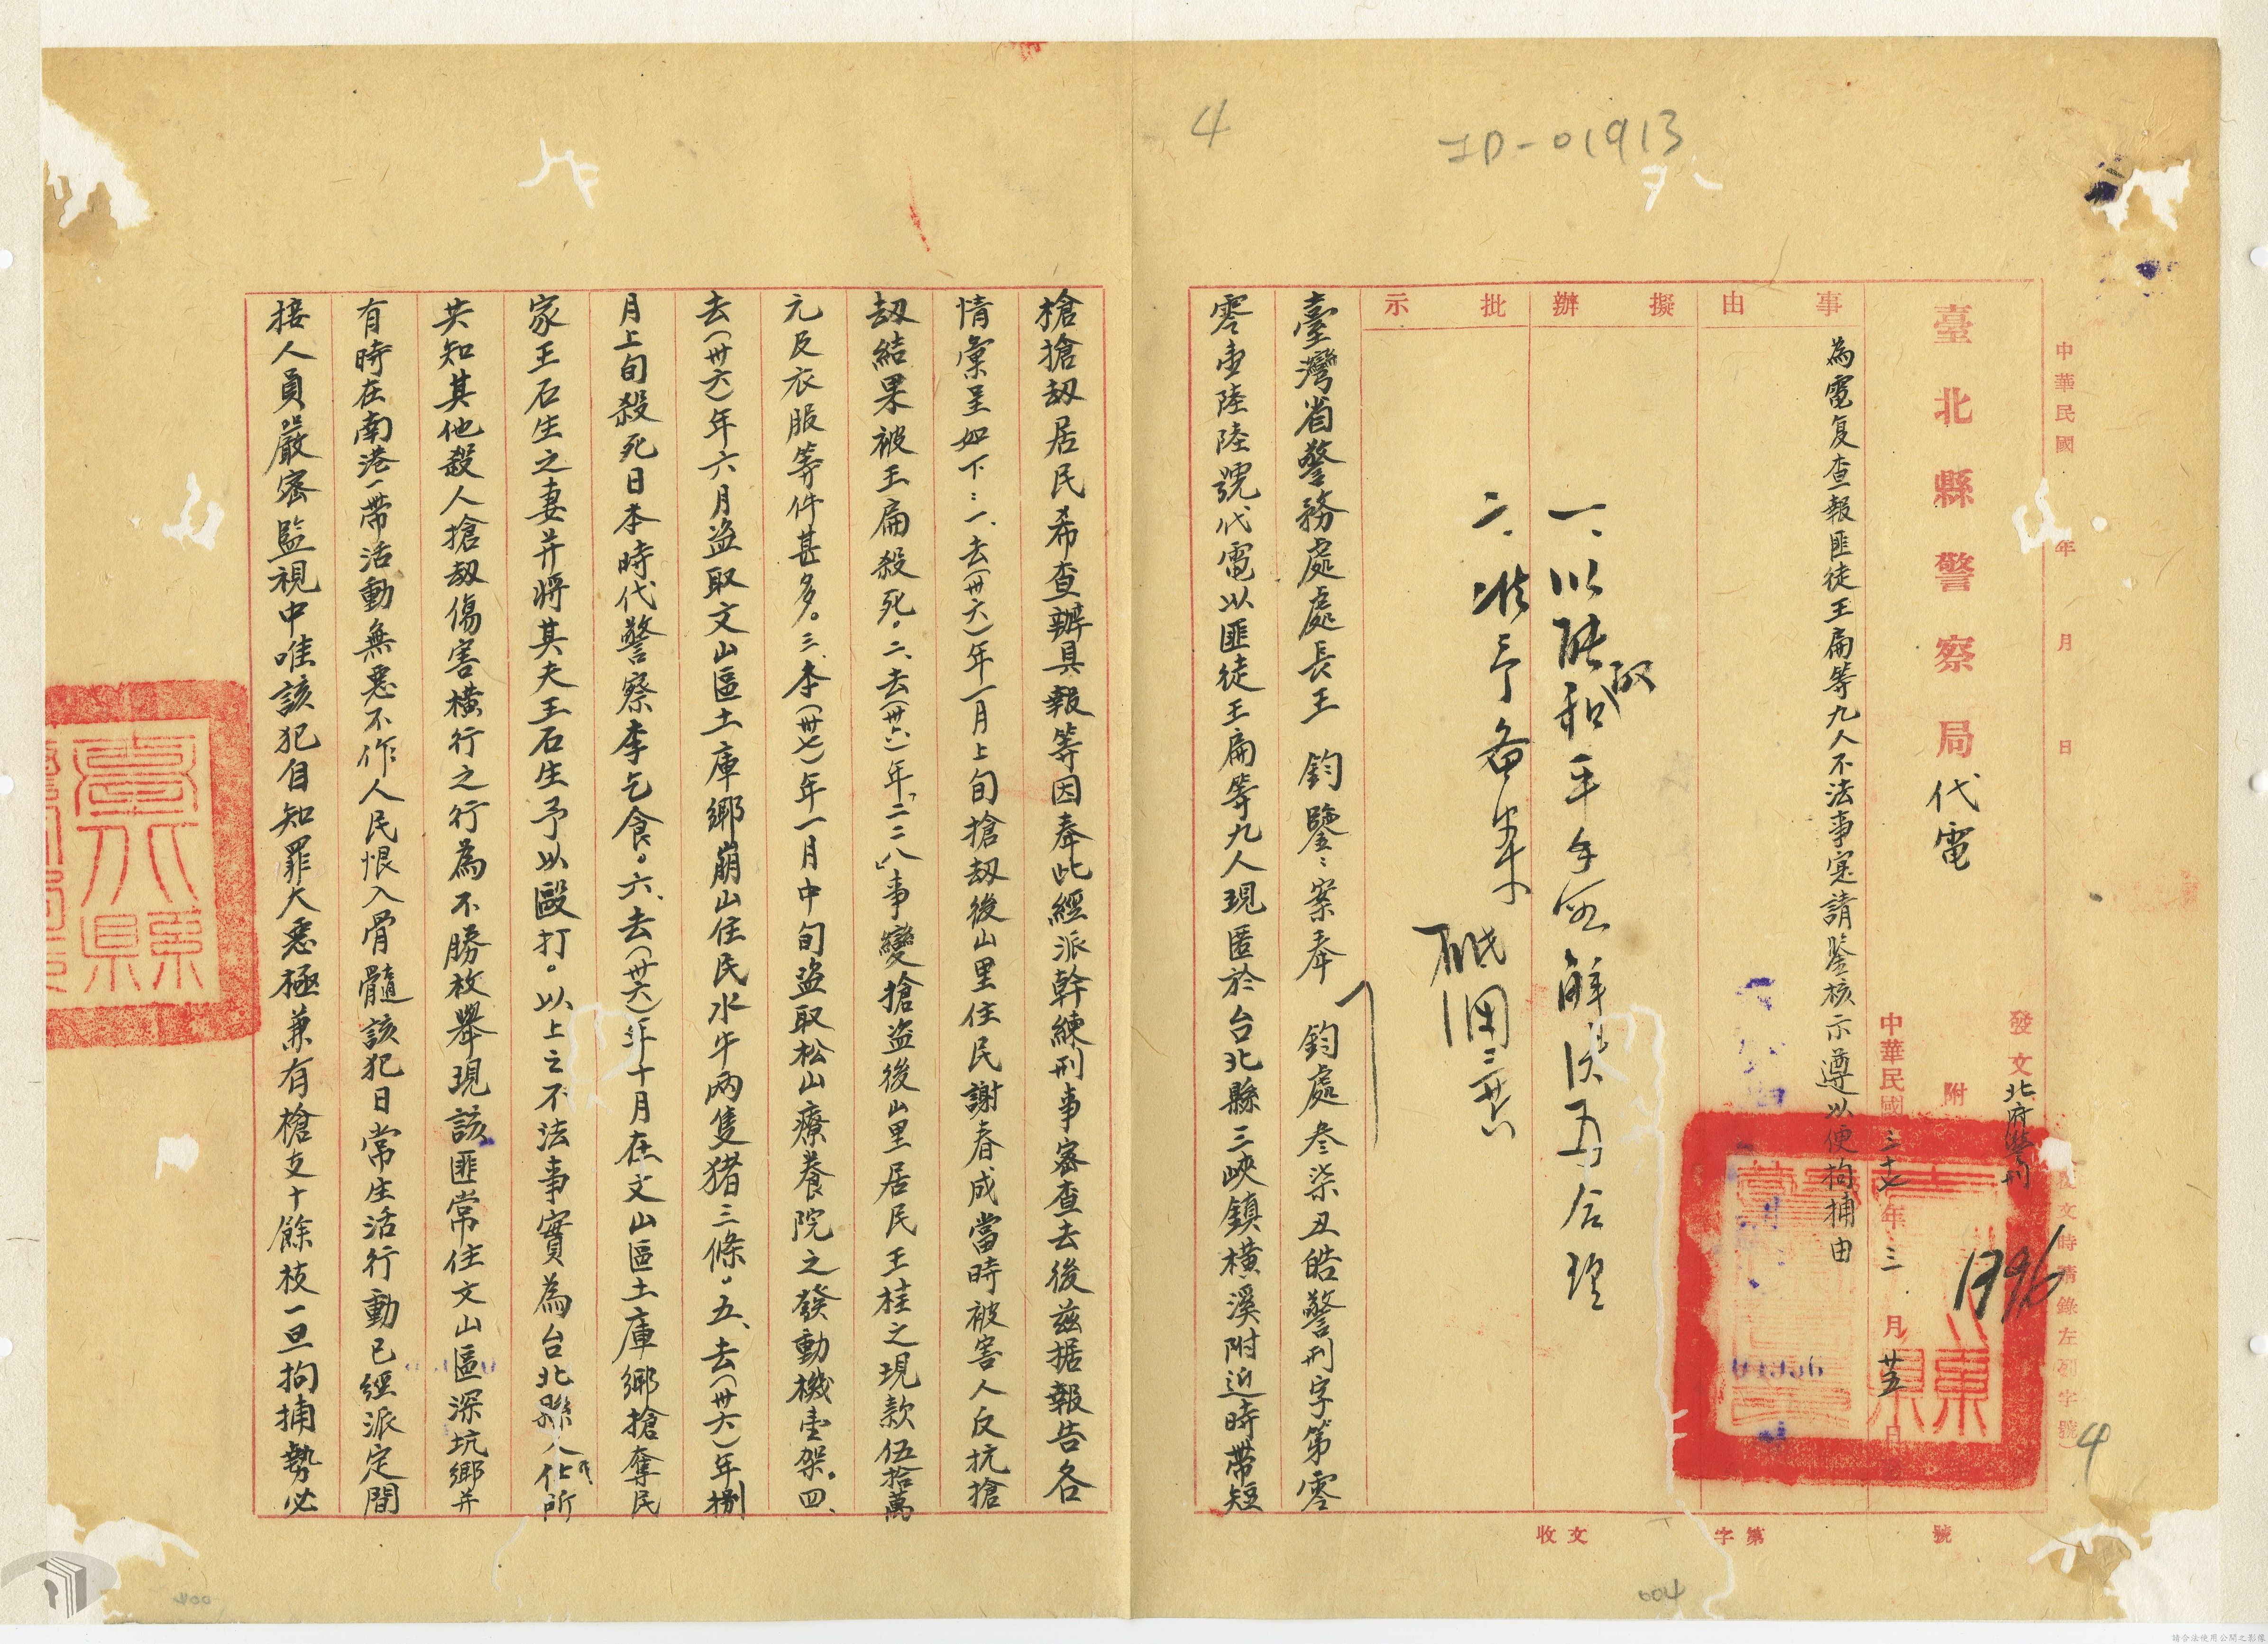 4
ID-01913
中華民國 年 月 日
發文
北府警刑
1996
收文時請錄左列字號
臺北縣警察局代電
附
中華民國三十七年三月廿五日
事由
為電复查報匪徒王扁等九人不法事寔請鑒核示遵以便拘捕由
擬辦
批示
二、准予备案
臺灣省警務處處長王 鈞鑒：案奉 鈞處叁柒丑皓警刑字第零
零壹陸陸號代電以匪徒王扁等九人現匿於台北縣三峽鎮橫溪附近時帶短
槍搶刼居民希查辦具報等因奉此經派幹練刑事密查去後茲据報告各
情彙呈如下：一、去(卅六)年一月上旬搶刼後山里住民謝春成當時被害人反抗搶
刼結果被王扁殺死。二、去(卅六)年「二二八」事變搶盜後山里居民王桂之現款伍拾萬
元及衣服等件甚多。三、本(卅七)年一月中旬盜取松山療養院之發動機壹架。四、
去(卅六)年六月盜取文山區土庫鄉崩山住民水牛兩隻猪三條。五、去(卅六)年捌
月上旬殺死日本時代警察李乞食。六、去(卅六)年十月在文山區土庫鄉搶奪民
家王石生之妻并將其夫王石生予以毆打。以上之不法事實為台北縣人民所
共知其他殺人搶刼傷害橫行之行為不勝枚舉現該匪常住文山區深坑鄉并
有時在南港一帶活動無惡不作人民恨入骨髓該犯日常生活行動已經派定間
接人員嚴密監視中唯該犯自知罪大惡極兼有槍支十餘枝一旦拘捕勢必
收文 字第 號
4
004
400
請合法使用公開之影像